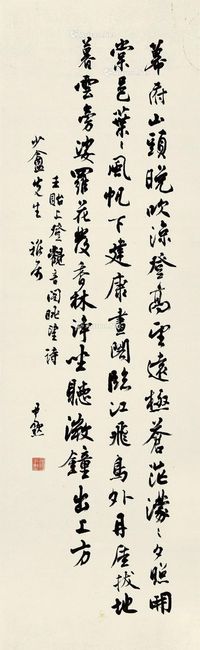 幕府山頭晚吹涼登高望遠極蒼茫濛〻夕照開
棠邑葉〻風帆下建康畫閣臨江飛鳥外丹崖拔地
暮雲旁娑羅花發香林淨坐聽鐘出上方
王貽上登觀音閣眺望詩
少盦先生 雅屬
尹默